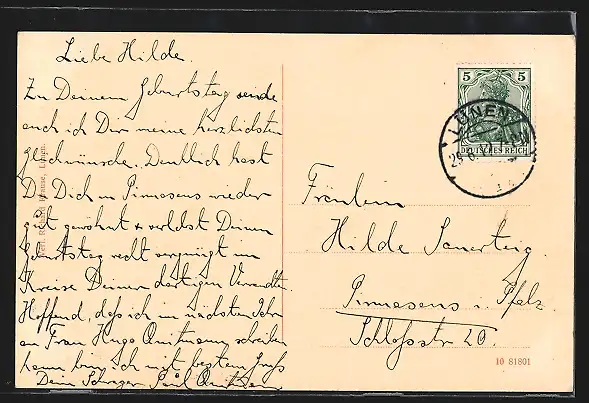 Liebe Hilde.
Zu Deinem Geburtstag sende
auch ich Dir meine herzlichsten
Glückwünsche. Hast
Du Dich in Pirmasens wieder
gut gewöhnt & Deinen
Geburtstag recht vergnügt im
Kreise Deiner dortigen Verwandten.
Hoffend, daß ich im nächsten Jahr
an Frau Hugo schreiben
kann bin ich mit bestem Gruß
Dein Schwager Paul
5 5
DEUTSCHES REICH
LÜNEN
Fräulein
Hilde Sauerteig.
Pirmasens i. Pfalz
Schloßstr 20.
10 81801